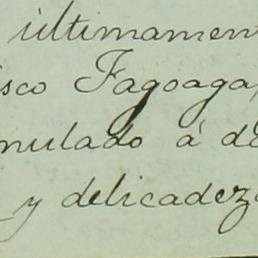 ultimamen
isco Fagoaga,
mulado á do
y delicadez